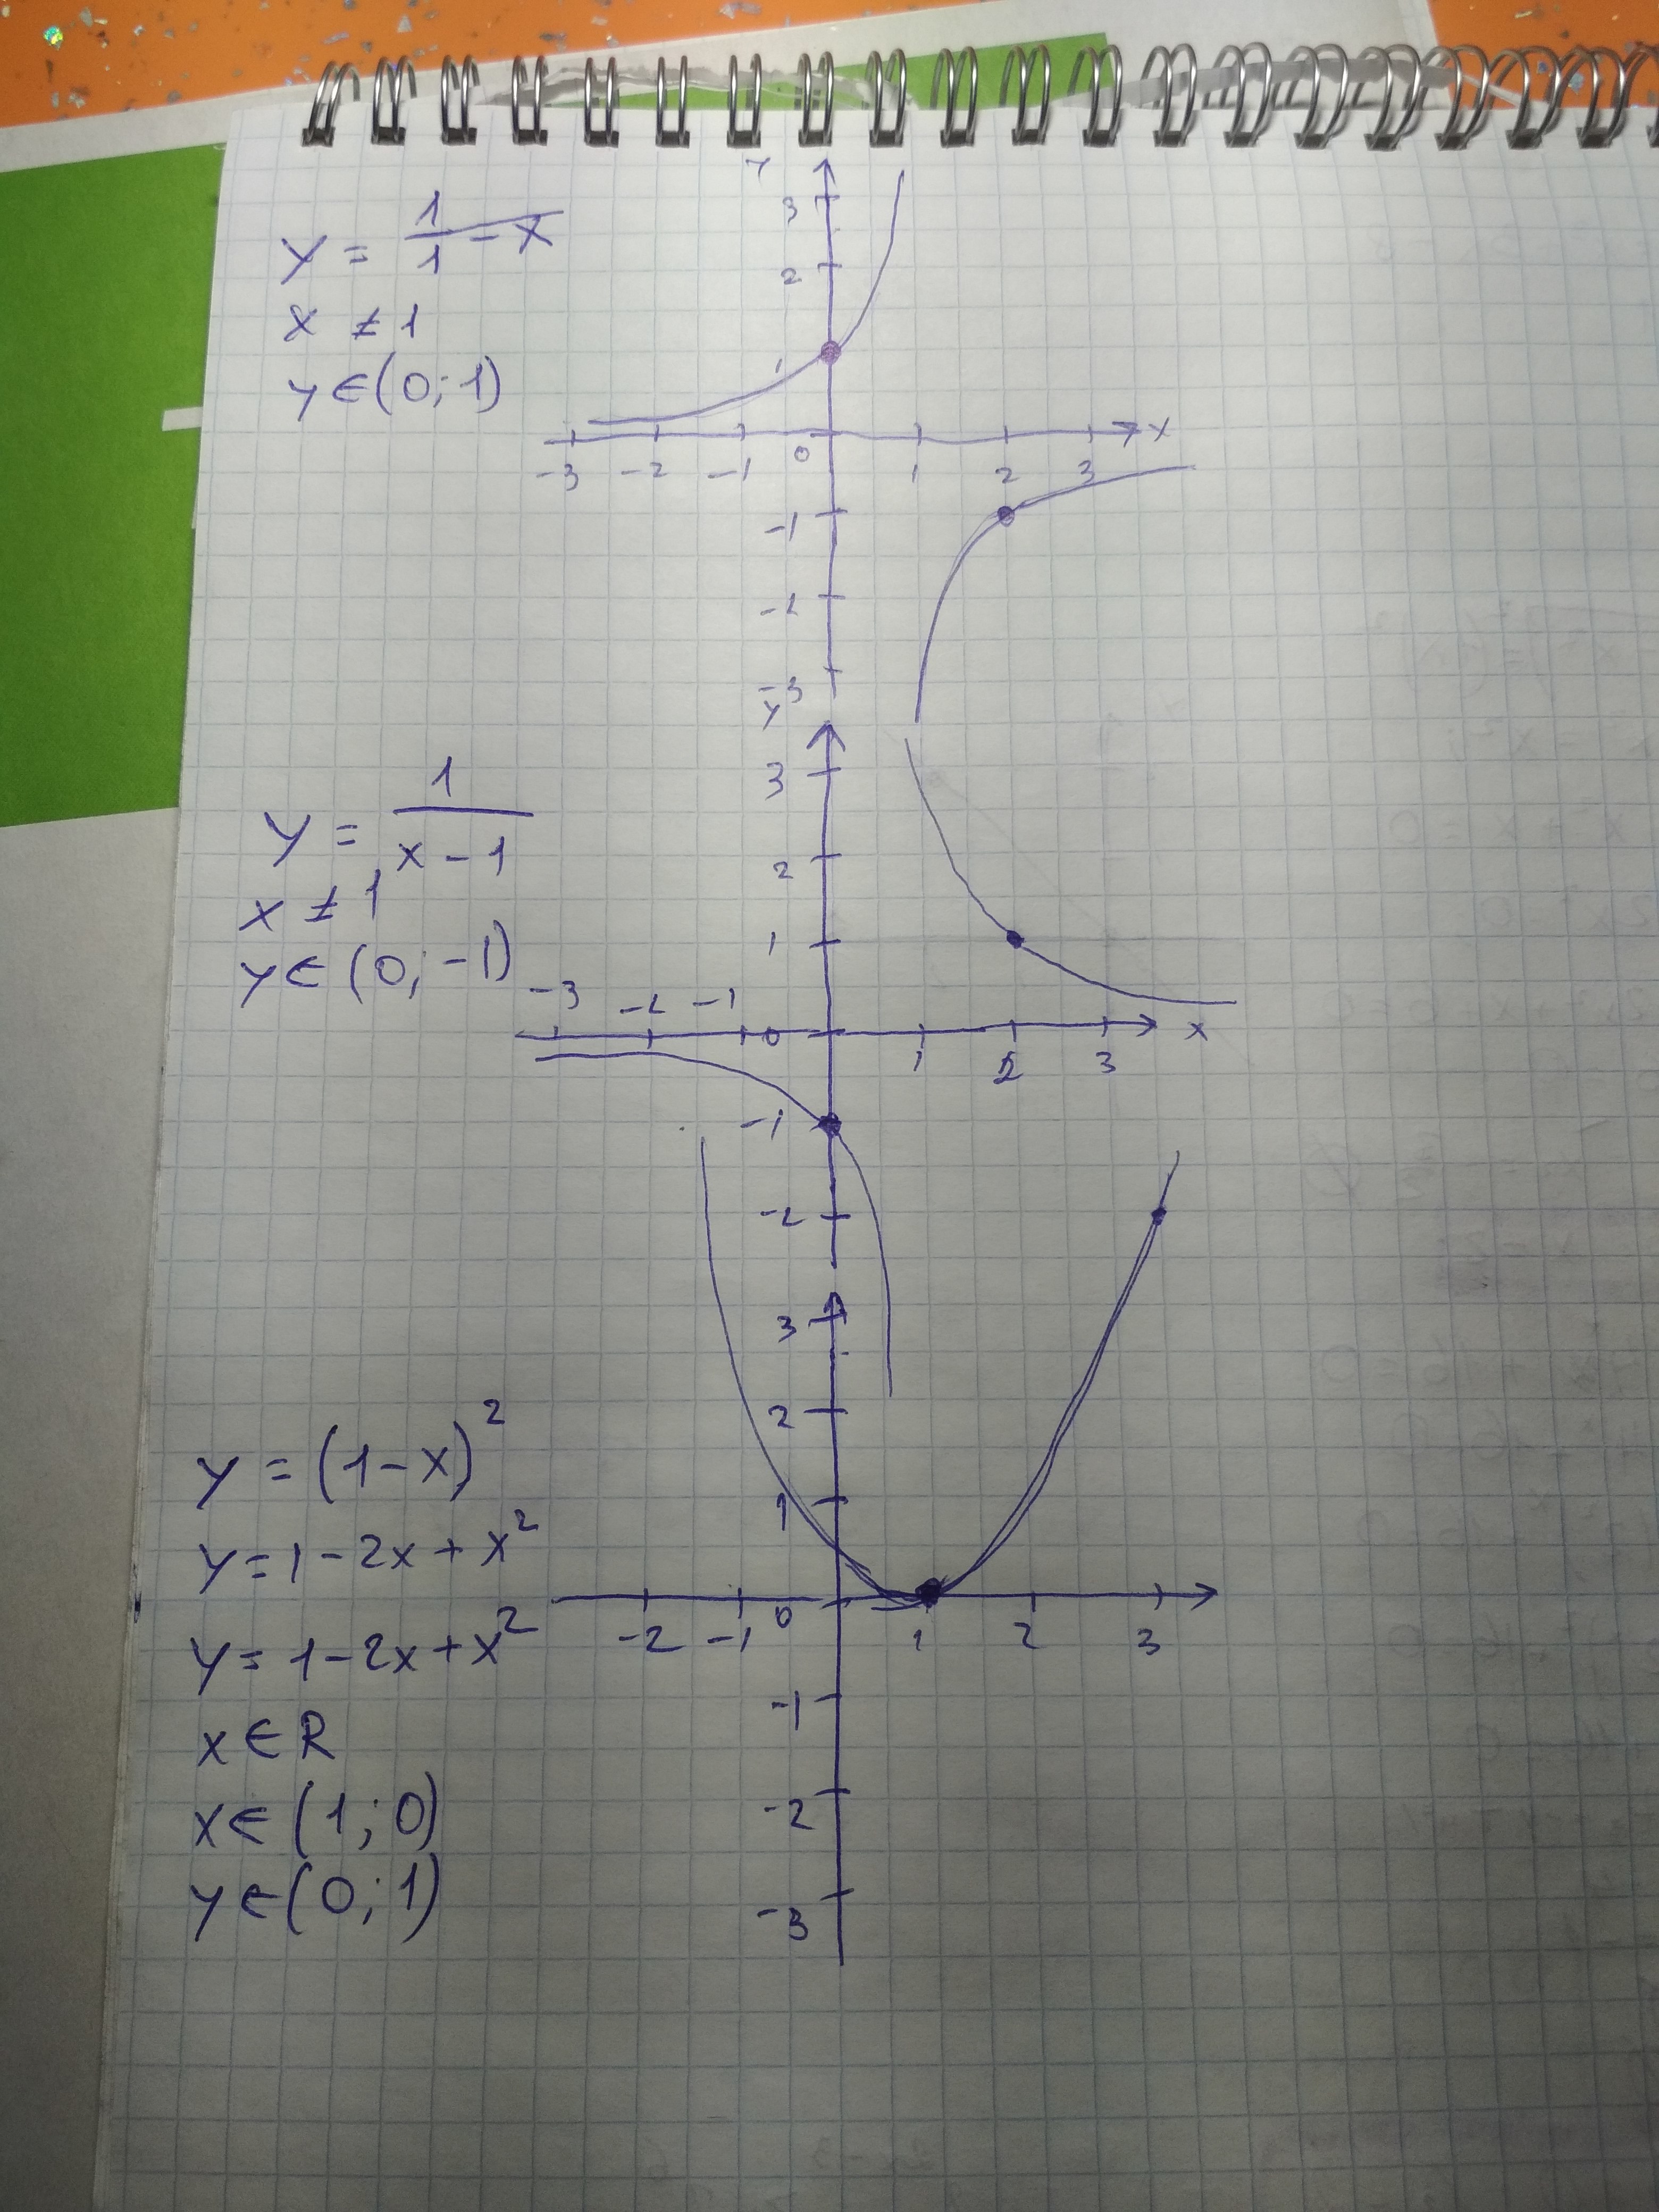 y = 1/1 - x
x ≠ 1
y ∈ (0; 1)
y
3
2
1
0
x
-3 -2 -1 1 2 3
-1
-2
-3
y = 1/x - 1
x ≠ 1
y ∈ (0; -1)
y
3
2
1
-3 -2 -1 0 x
1 2 3
-1
-2
y = (1-x)²
y = 1 - 2x + x²
y = 1 - 2x + x²
x ∈ R
x ∈ (1; 0)
y ∈ (0; 1)
3
2
1
0
-2 -1 1 2 3
-1
-2
-3